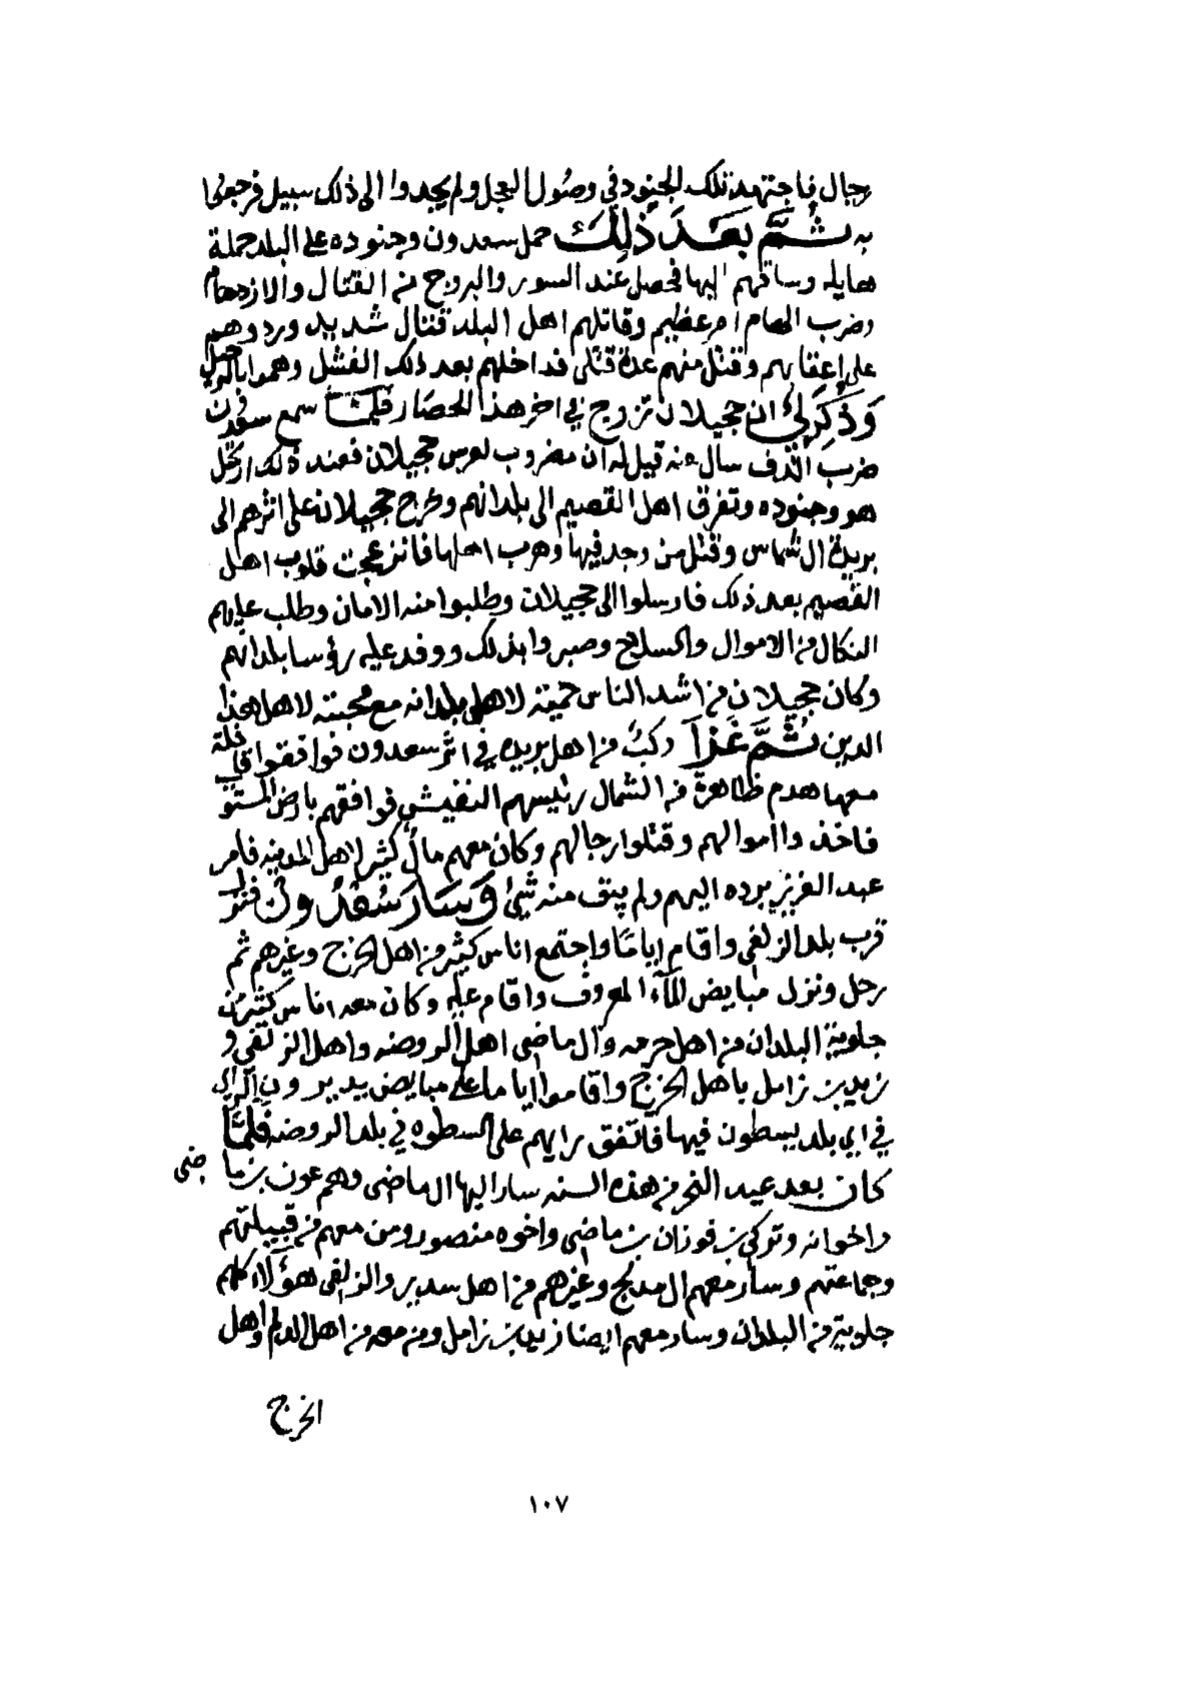 رجال فاجتهد تلك الجنود في وصول العجل ولم يجدوا الى ذلك سبيل فرجعوا
به ثُمَّ بَعَدَ ذَلِكَ حمل سعدون وجنوده على البلد حملة
هايله وساقهم اليها فحصل عند السور والبروج من القتال والازدحام
وضرب الهام امر عظيم وقاتلهم اهل البلد قتال شديد وردوهم
على اعقابهم وقتل منهم عدة قتلى فداخلهم بعد ذلك الفشل وهموا بالرحيل
وَذُكِرَ لي ان حجيلان تزوج في اخر هذا الحصار فلمَّا سمع سعدون
ضرب الدف سال عنه قيل له ان مضروب لعرس حجيلان فعند ذلك ارتحل
هو وجنوده وتفرق اهل القصيم الى بلدانهم وخرج حجيلان على اثرهم الى
بريدة ال شماس وقتل من وجد فيها وهرب اهلها فانزعجت قلوب اهل
القصيم بعد ذلك فارسلوا الى حجيلان وطلبوا منه الامان وطلب عليهم
النكال من الاموال والسلاح وصبروا بذلك ووفد عليه رؤسا بلدانهم
وكان حجيلان من اشد الناس حميته لاهل بلدانه مع محبته لاهل هذا
الدين ثُمَّ غَزَا ركبٌ من اهل بريده في اثر سعدون فوافقوا قافلة
معها هدم ظاهرة من الشمال رئيسهم النفيشي فوافقهم بارض المستوي
فاخذوا اموالهم وقتلوا رجالهم وكان معهم مالٌ كثير لاهل المدينه فامر
عبد العزيز برده اليهم ولم يبق منه شئٌ وَسَارَ سَعْدُونُ فنزل
قرب بلد الزلفي واقام اياما واجتمع اناس كثير من اهل الخرج وغيرهم ثم
رحل ونزل مبايض المآء المعروف واقام عليه وكان معه اناس كثير من
جلوية البلدان من اهل حرمه وآل ماضي اهل الروضه واهل الزلفي و
زيد بن زامل باهل الخرج واقاموا اياما على مبايض يديرون الراي
في اي بلد يسطون فيها فاتفق رايهم على السطوه في بلد الروضه فلمَّا
كان بعد عيد النحر من هذه السنه سار اليها ال ماضي وهم عون بن ماضي
واخوانه وتركي بن فوزان بن ماضي واخوه منصور ومن معهم من قبيلتهم
وجماعتهم وسار معهم ال مدلج وغيرهم من اهل سدير والزلفي هؤلاء كلهم
جلوية من البلدان وسار معهم ايضا زيد بن زامل ومن معه من اهل الدلم واهل
الخرج
١٠٧